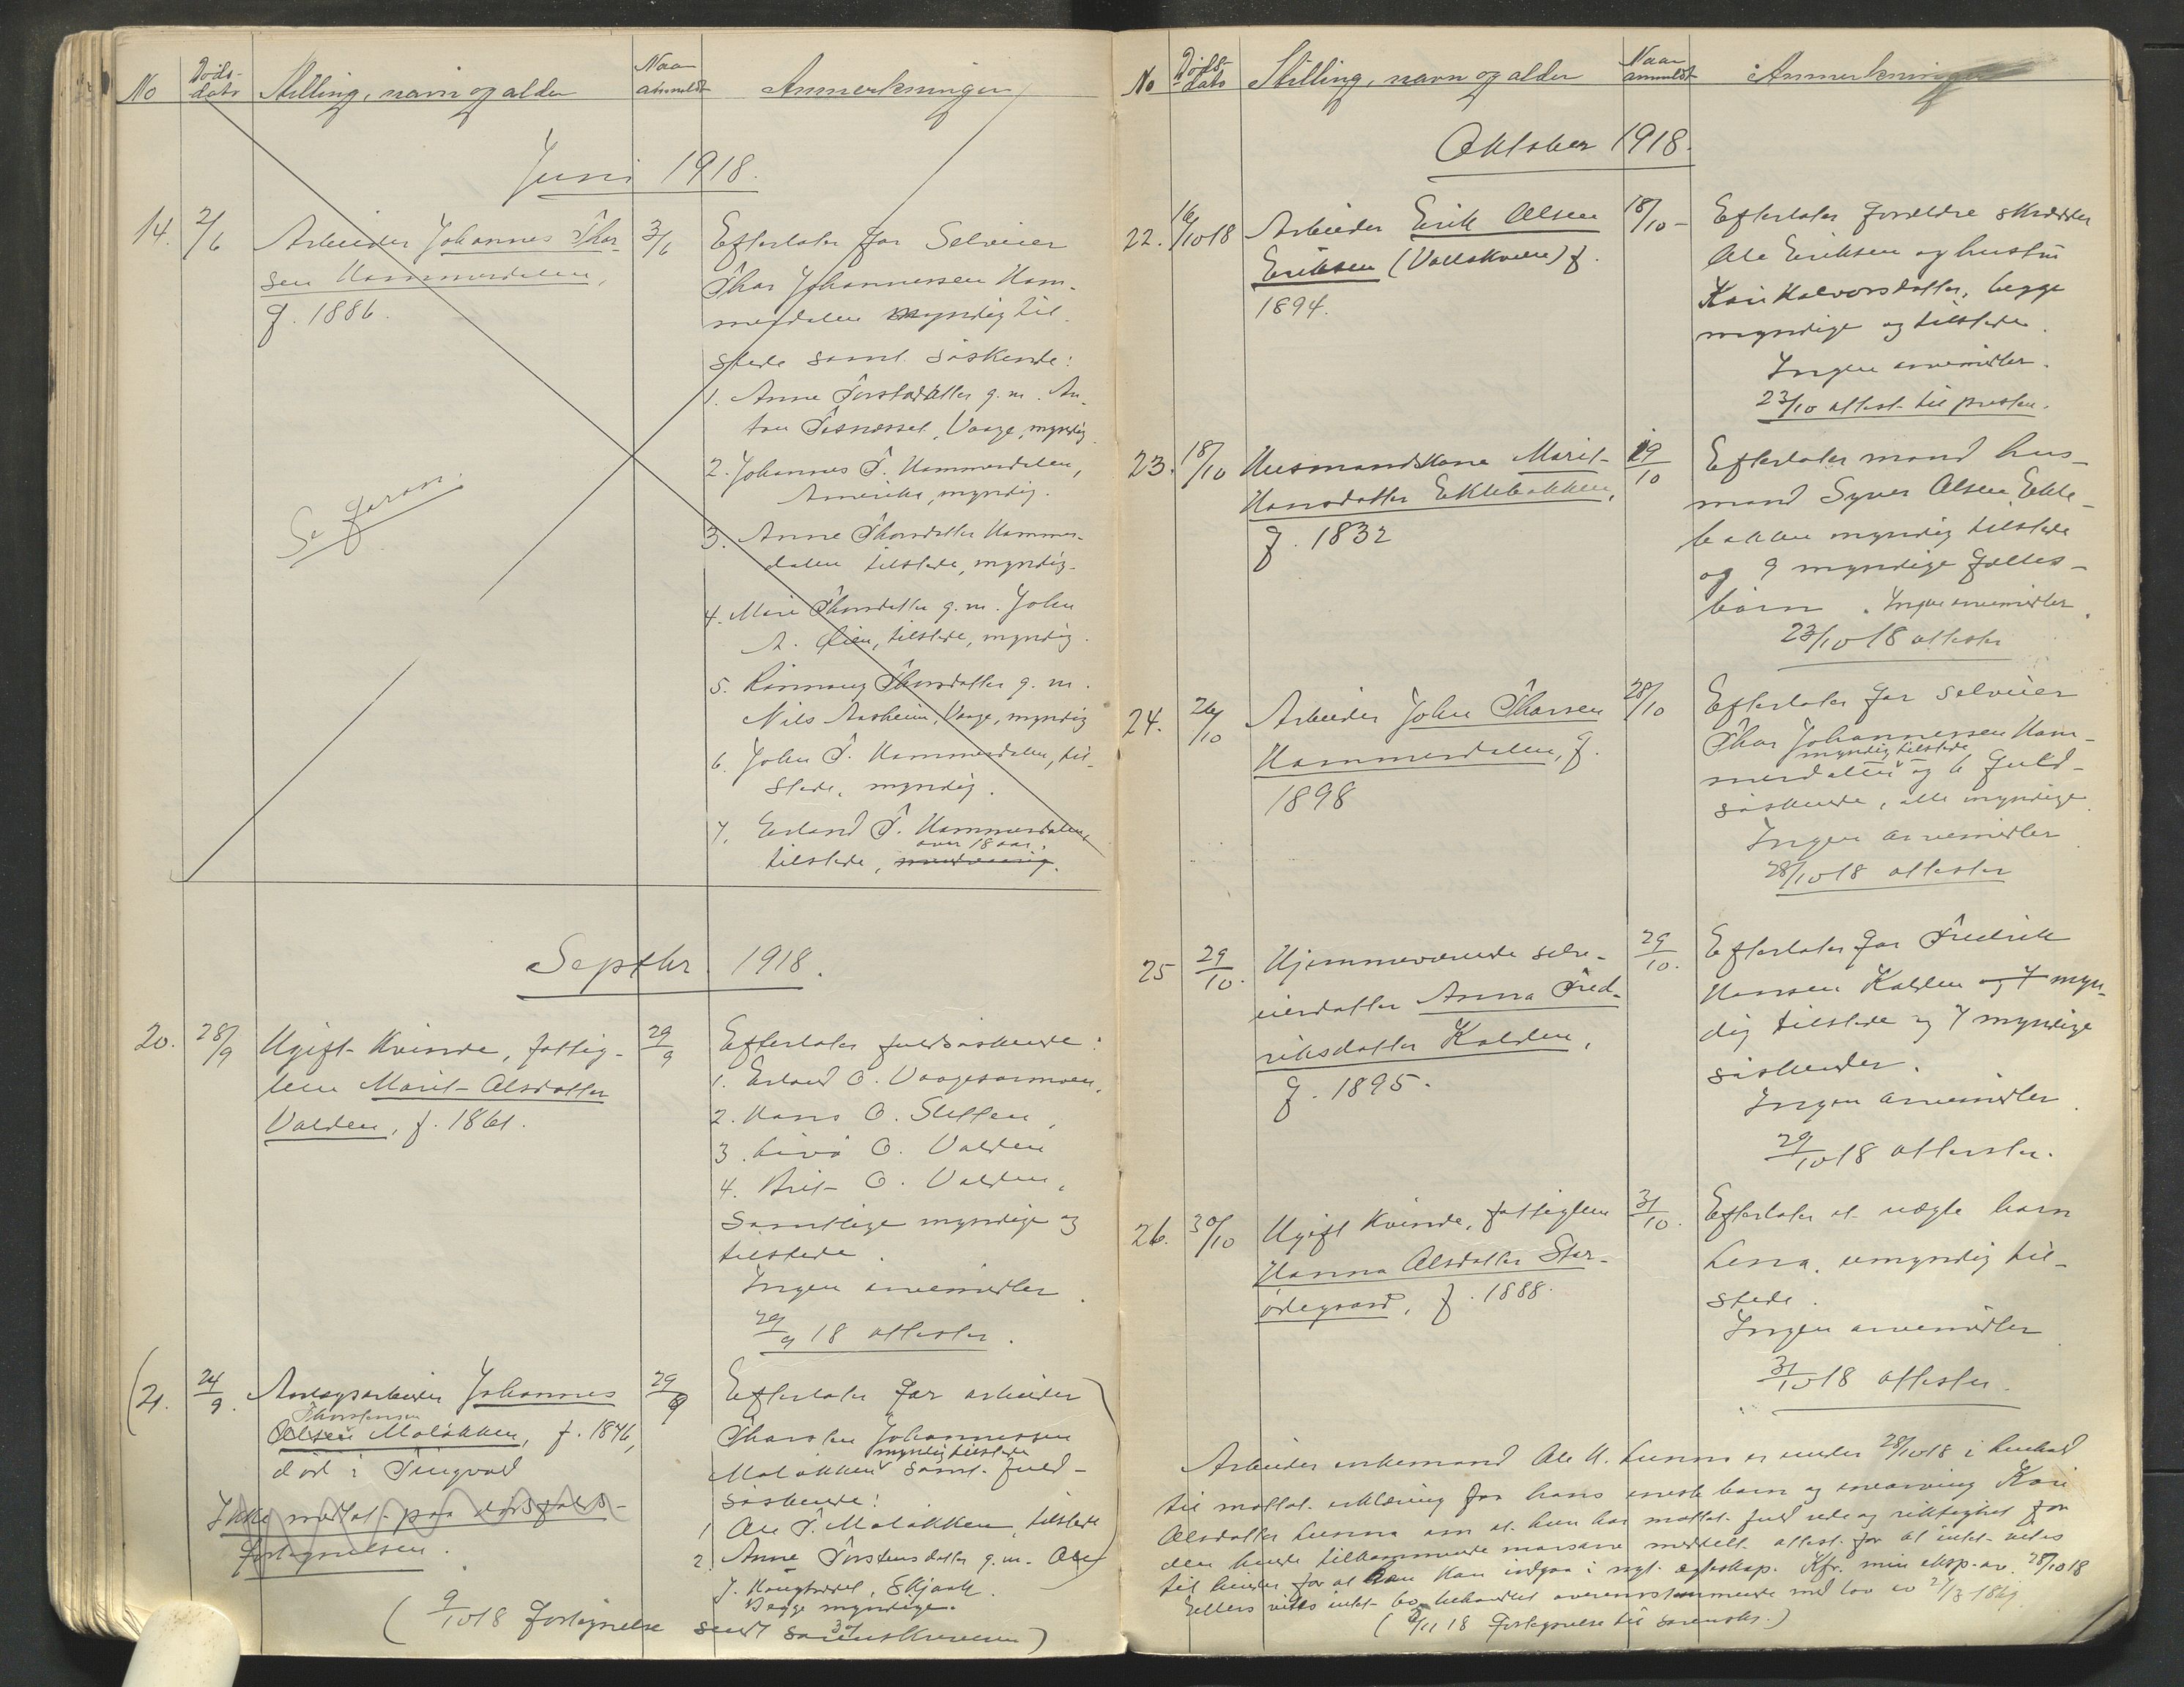 No
Døds-
dato
Stilling, navn og alder
Naar
anmeldt
Anmerkninger
Juni 1918.
14.
2/6
Arbeider Johannes Thor-
sen Hammerdalen,
f. 1886.
3/6
Efterlater far Selveier
Thor Johannessen Ham-
merdalen myndig til-
stede samt søskende:
1. Anne Torsdatter g.m. An-
ton, Vaage, myndig.
2. Johannes T. Hammerdalen,
Amerika, myndig.
3. Anne Thorsdatter Hammer-
dalen tilstede, myndig.
4. Mari Thorsdatter g.m. John
A. Øien, tilstede, myndig.
5. Rønnaug Thorsdatter g.m.
Nils Aasheim, Vaage, myndig
6. John T. Hammerdalen, til-
stede, myndig.
7. Erland T. Hammerdalen,
over 18 aar.
tilstede, mindreaarig.
Se foran.
Septbr. 1918.
20.
28/9
Ugift Kvinde, fattig-
lem Marit Olsdatter
Valden, f. 1861.
29/9
Efterlater fuldsøskende:
1. Erland O. Vaagesarmoen,
2. Hans O. Sletten,
3. Livø O. Valden
4. Brit O. Valden,
Samtlige myndige og
tilstede.
Ingen arvemidler.
29/9 18 attester.
(21.
24/9.
Anlægsarbeider Johannes
Thorstensen
Olsen Moløkken, f. 1876,
død i Tingvold
Ikke medtat paa dødsfalds-
fortegnelsen.
29/9
Efterlater far arbeider
Thorsten Johannessen
myndig tilstede
Moløkken samt fuld-
søskende:
1 Ole T. Moløkken, tilstede
2. Anne Torstensdatter g.m. Ole
J., Skjaak.
Begge myndige.
(9/10 18 fortegnelse sendt sorenskriveren)
No
Døds-
dato
Stilling, navn og alder
Naar
anmeldt
Anmerkninger
Oktober 1918.
22.
16/10 18
Arbeider Erik Olsen
Eriksen (Vollakveen) f.
1894.
18/10 -
Efterlater forældre skrædder
Ole Eriksen og hustru
Kari Halvorsdatter, begge
myndige og tilstede.
Ingen arvemidler.
23/10 attest til presten.
23.
18/10
Husmandskone Marit
Hansdatter Eklebakken,
f. 1832
19/10
Efterlater mand hus-
mand Syver Olsen Ekle-
bakken myndig tilstede
og 9 myndige fælles-
børn. Ingen arvemidler.
23/10 18 attester
24.
26/10
Arbeider John Thorsen
Hammerdalen, f.
1898
28/10
Efterlater far selveier
Thor Johannessen Ham-
myndig tilstede
merdalen og 6 fuld-
søskende, alle myndige.
Ingen arvemidler
28/10 18 attester
25
29/10.
Hjemmeværende selv-
eierdatter Anna Fred-
riksdatter Kolden,
f. 1895.
29/10.
Efterlater far Fredrik
Hansen Kolden og 7 myn-
dig tilstede og 7 myndige
søskender.
Ingen arvemidler.
29/10 18 attester.
26.
30/10
Ugift Kvinde, fattiglem
Hanna Olsdatter Stor-
ødegaard, f. 1888.
31/10.
Efterlater et uægte barn
Lena, umyndig til-
stede.
Ingen arvemidler
31/10 18 attester.
Arbeider enkemand Ole H. Lunna er under 28/10 18 i henhold
til mottat erklæring fra hans eneste barn og enearving Kari
Olsdatter Lunna om at hun har mottat fuld rede og rigtighet for
den hende tilkommende morsarv meddelt attest for at intet vites
til hinder for at han kan indgaa i nyt egteskap. Kfr. min eksp. av 28/10 18
Ellers vites intet bo behandlet overensstemmende med lov av
(5/11 18 Fortegnelse til sorenskr.)